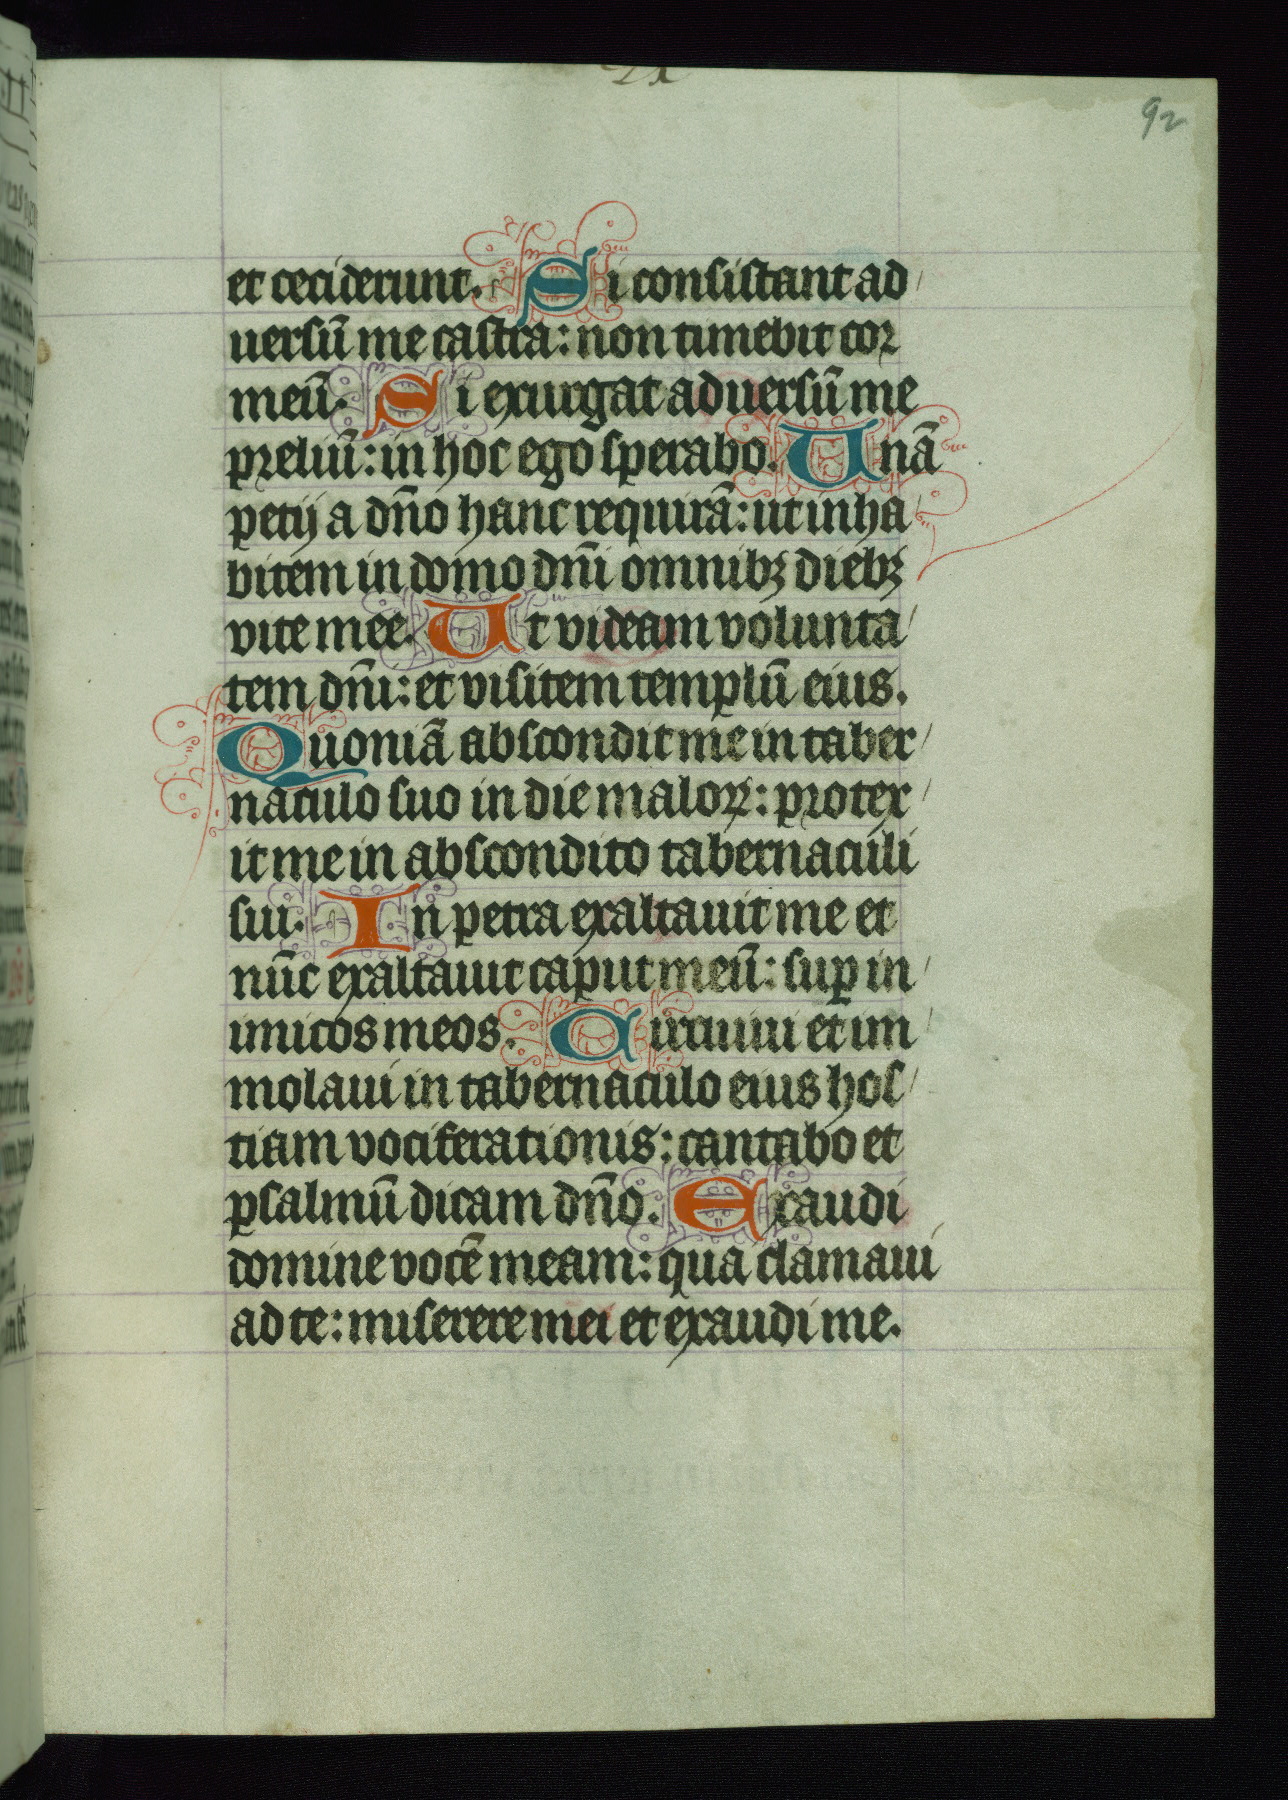 92
et ceciderunt. Si consistant ad
uersū me castra: non timebit cor
meū. Si exurgat aduersū me
preliū: in hoc ego sperabo. Unā
petij a dn̄o hanc requirā: ut inha
bitem in domo dn̄i omnibꝫ diebꝫ
vite mee. Ut videam volunta
tem dn̄i: et visitem templū eius.
Quoniā abscondit me in taber
naculo suo in die maloꝝ: protex
it me in abscondito tabernaculi
sui. In petra exaltauit me et
nūc exaltauit caput meū: suꝑ in
imicos meos. Circuiui et im
molaui in tabernaculo eius hos
tiam vociferationis: cantabo et
psalmū dicam dn̄o. Exaudi
domine vocē meam: qua clamaui
ad te: miserere mei et exaudi me.